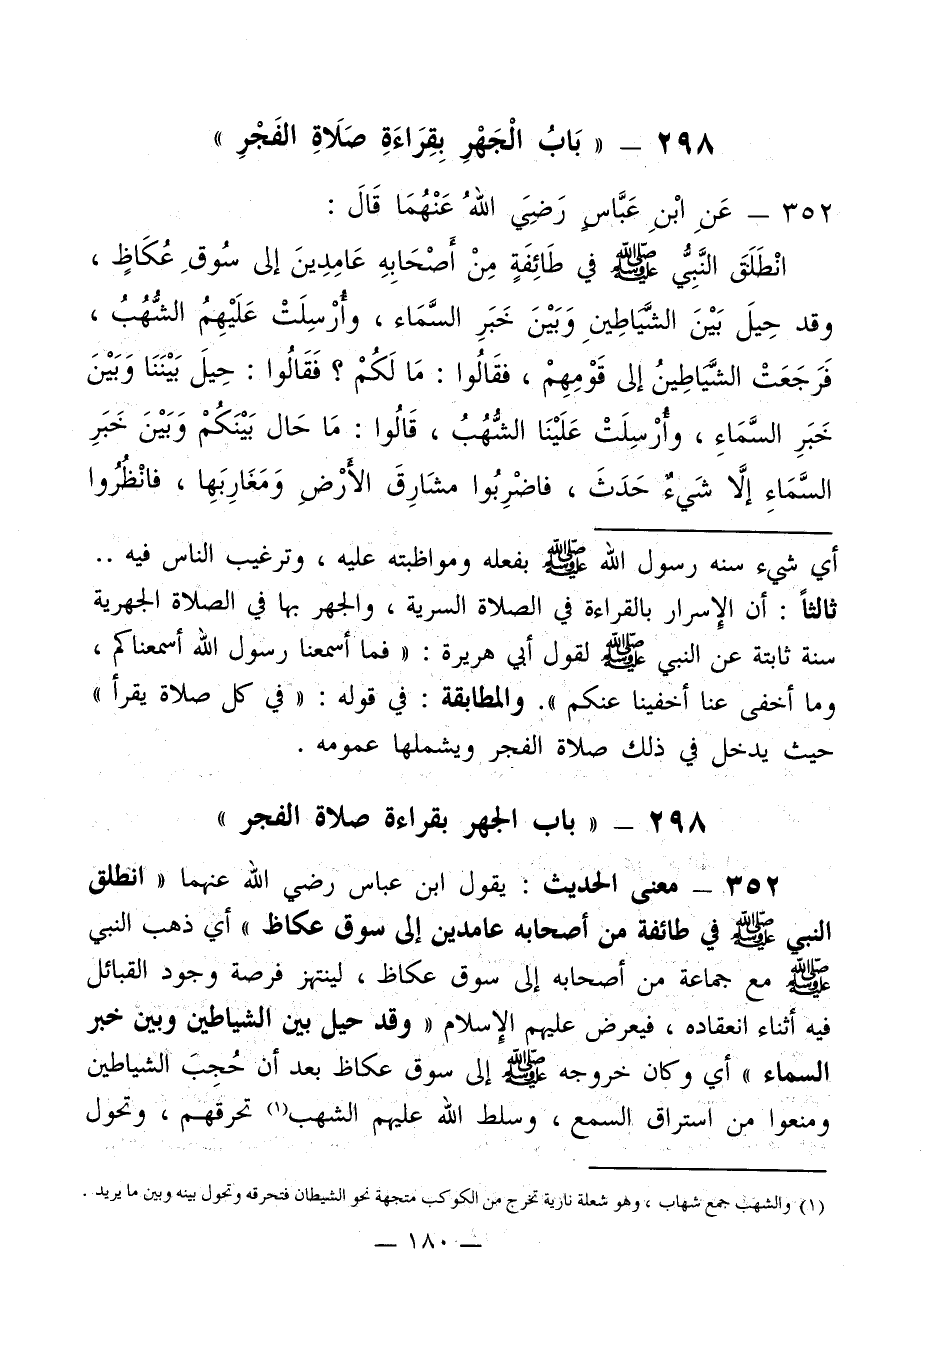 ٢٩٨ ــ « بَابُ الْجَهْرِ بِقِرَاءَةِ صَلَاةِ الفَجْرِ »
٣٥٢ ــ عَنِ ابْنِ عَبَّاسٍ رَضِيَ اللهُ عَنْهُمَا قَالَ :
انْطَلَقَ النَّبِيُّ ﷺ في طَائِفَةٍ مِنْ أَصْحَابِهِ عَامِدِينَ إلى سُوقِ عُكَاظٍ ،
وقد حِيلَ بَيْنَ الشَّيَاطِينِ وَبَيْنَ خَبَرِ السَّمَاء ، وأُرْسِلَتْ عَلَيْهِمُ الشُّهُبُ ،
فَرَجَعَتْ الشَّيَاطِينُ إلى قَوْمِهِمْ ، فقَالُوا : مَا لَكُمْ ؟ فَقَالُوا : حِيلَ بَيْنَنَا وَبَيْنَ
خَبَرِ السَّمَاءِ ، وأُرْسِلَتْ عَلَيْنَا الشُّهُبُ ، قَالُوا : مَا حَال بَيْنَكُمْ وَبَيْنَ خَبَرِ
السَّمَاءِ إلَّا شَيءٌ حَدَثَ ، فاضْرِبُوا مشَارِقَ الأَرْضِ وَمَغَارِبَها ، فانْظُرُوا
أي شيء سنه رسول الله ﷺ بفعله ومواظبته عليه ، وترغيب الناس فيه ..
ثالثاً : أن الإسرار بالقراءة في الصلاة السرية ، والجهر بها في الصلاة الجهرية
سنة ثابتة عن النبي ﷺ لقول أبي هريرة : « فما أسمعنا رسول الله أسمعناكم ،
وما أخفى عنا أخفينا عنكم ». والمطابقة : في قوله : « في كل صلاة يقرأ »
حيث يدخل في ذلك صلاة الفجر ويشملها عمومه .
٢٩٨ ــ « باب الجهر بقراءة صلاة الفجر »
٣٥٢ ــ معنى الحديث : يقول ابن عباس رضي الله عنهما « انطلق
النبي ﷺ في طائفة من أصحابه عامدين إلى سوق عكاظ » أي ذهب النبي
ﷺ مع جماعة من أصحابه إلى سوق عكاظ ، لينتهز فرصة وجود القبائل
فيه أثناء انعقاده ، فيعرض عليهم الإسلام « وقد حيل بين الشياطين وبين خبر
السماء » أي وكان خروجه ﷺ إلى سوق عكاظ بعد أن حُجِبَ الشياطين
ومنعوا من استراق السمع ، وسلط الله عليهم الشهب(١) تحرقهم ، وتحول
(١) والشهب جمع شهاب ، وهو شعلة نارية تخرج من الكوكب متجهة نحو الشيطان فتحرقه وتحول بينه وبين ما يريد .
ــ ١٨٠ ــ